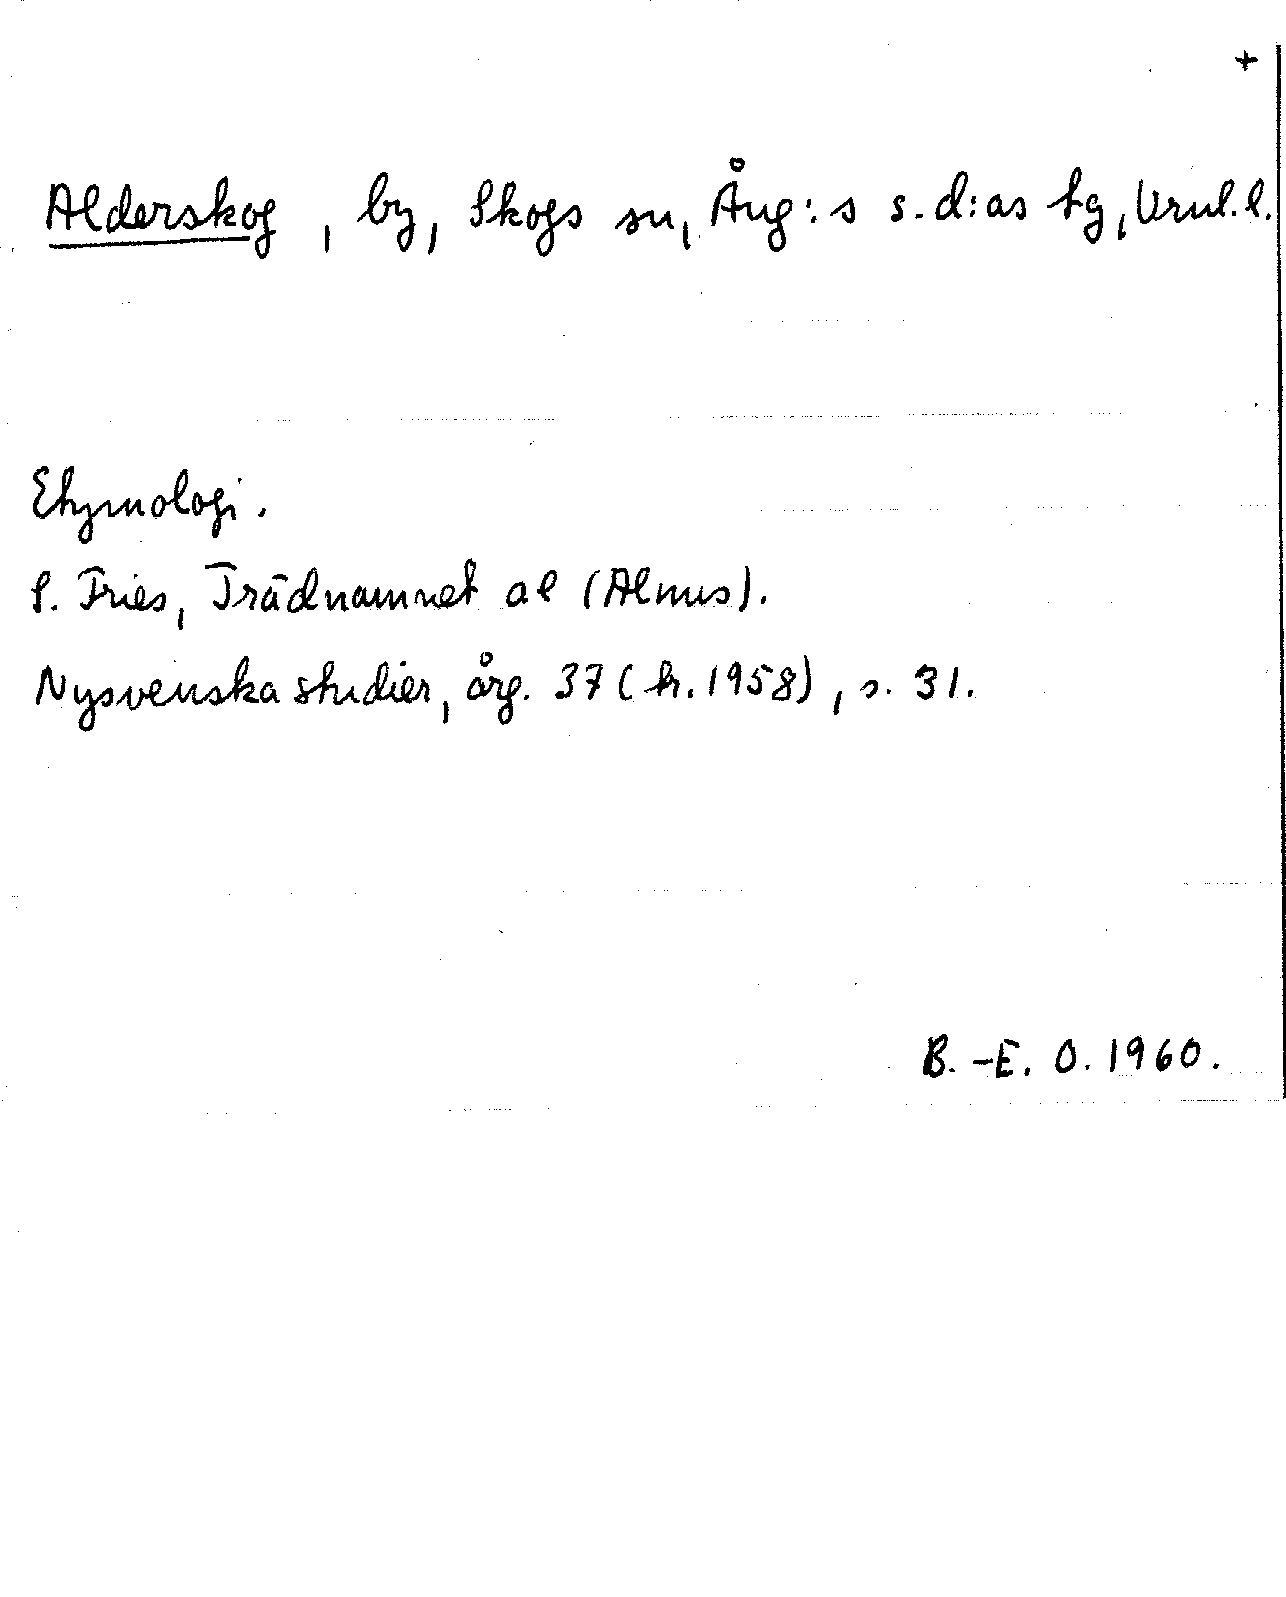 +
Alderskog, by, Skogs sn, Ång:s s.d:as tg, Vrnl.l.
Etymologi.
S. Fries, Trädnamnet al (Alnus).
Nysvenska studier, årg. 37 (tr. 1958), s. 31.
B.-E. O. 1960.